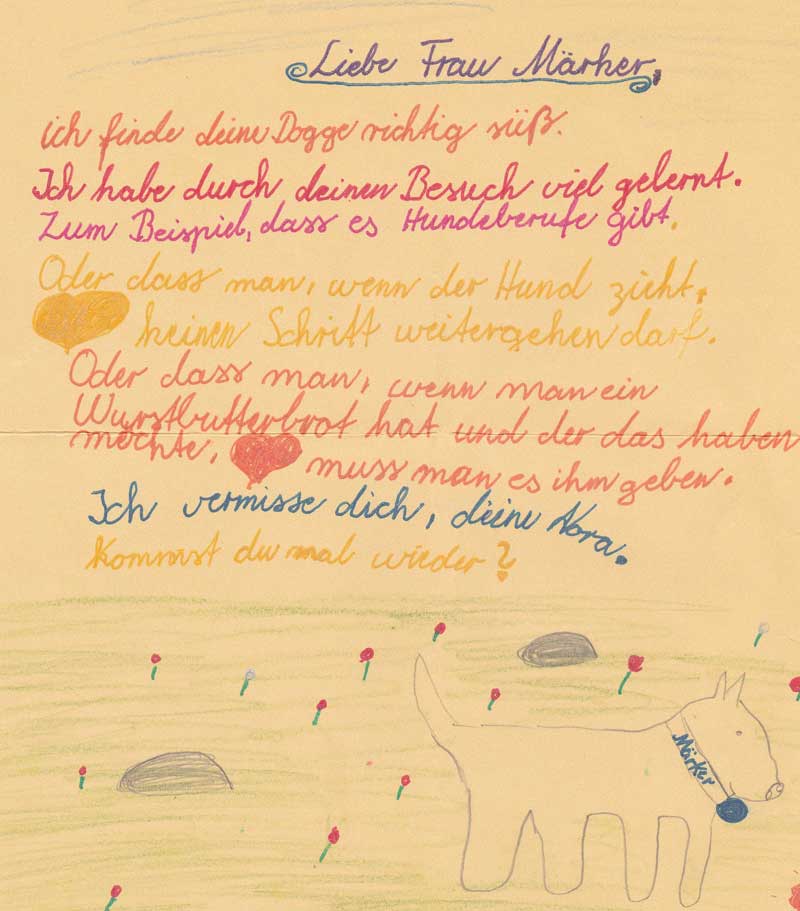 Liebe Frau Märker,
ich finde deine Dogge richtig süß.
Ich habe durch deinen Besuch viel gelernt.
Zum Beispiel, dass es Hundeberufe gibt.
Oder dass man, wenn der Hund zieht,
keinen Schritt weitergehen darf.
Oder dass man, wenn man ein
Wurstbutterbrot hat und der das haben
möchte, muss man es ihm geben.
Ich vermisse dich, deine Nora.
Kommst du mal wieder?
Märker